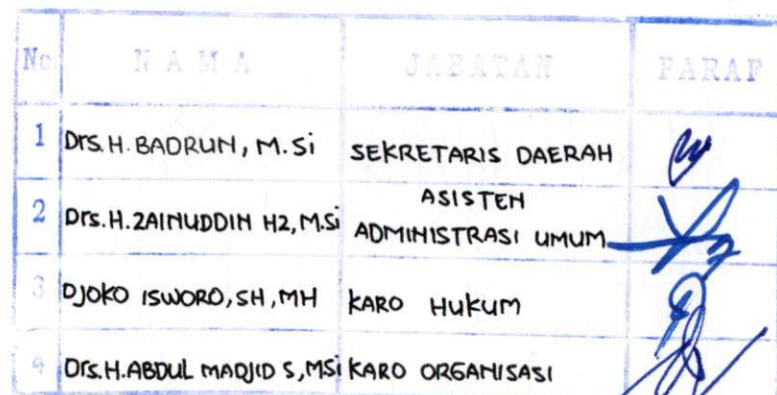 No. NAMA JABATAN PARAF
1 Drs. H. BADRUN, M.Si SEKRETARIS DAERAH
2 Drs.H.ZAINUDDIN HZ, M.Si ASISTEN
ADMINISTRASI UMUM
3 DJOKO ISWORO, SH, MH KARO HUKUM
4 Drs.H.ABDUL MADJID S, MSi KARO ORGANISASI